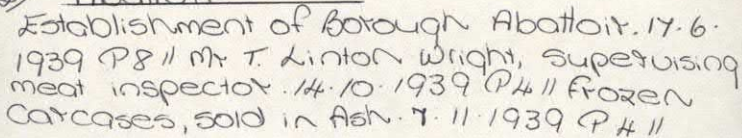 Establishment of Borough Abattoir. 17.6.
1939 P8 // Mr T. Linton Wright, Supervising
meat inspector. 14.10.1939 P4 // Frozen
Carcases, sold in Ash. 7.11.1939 P4 //